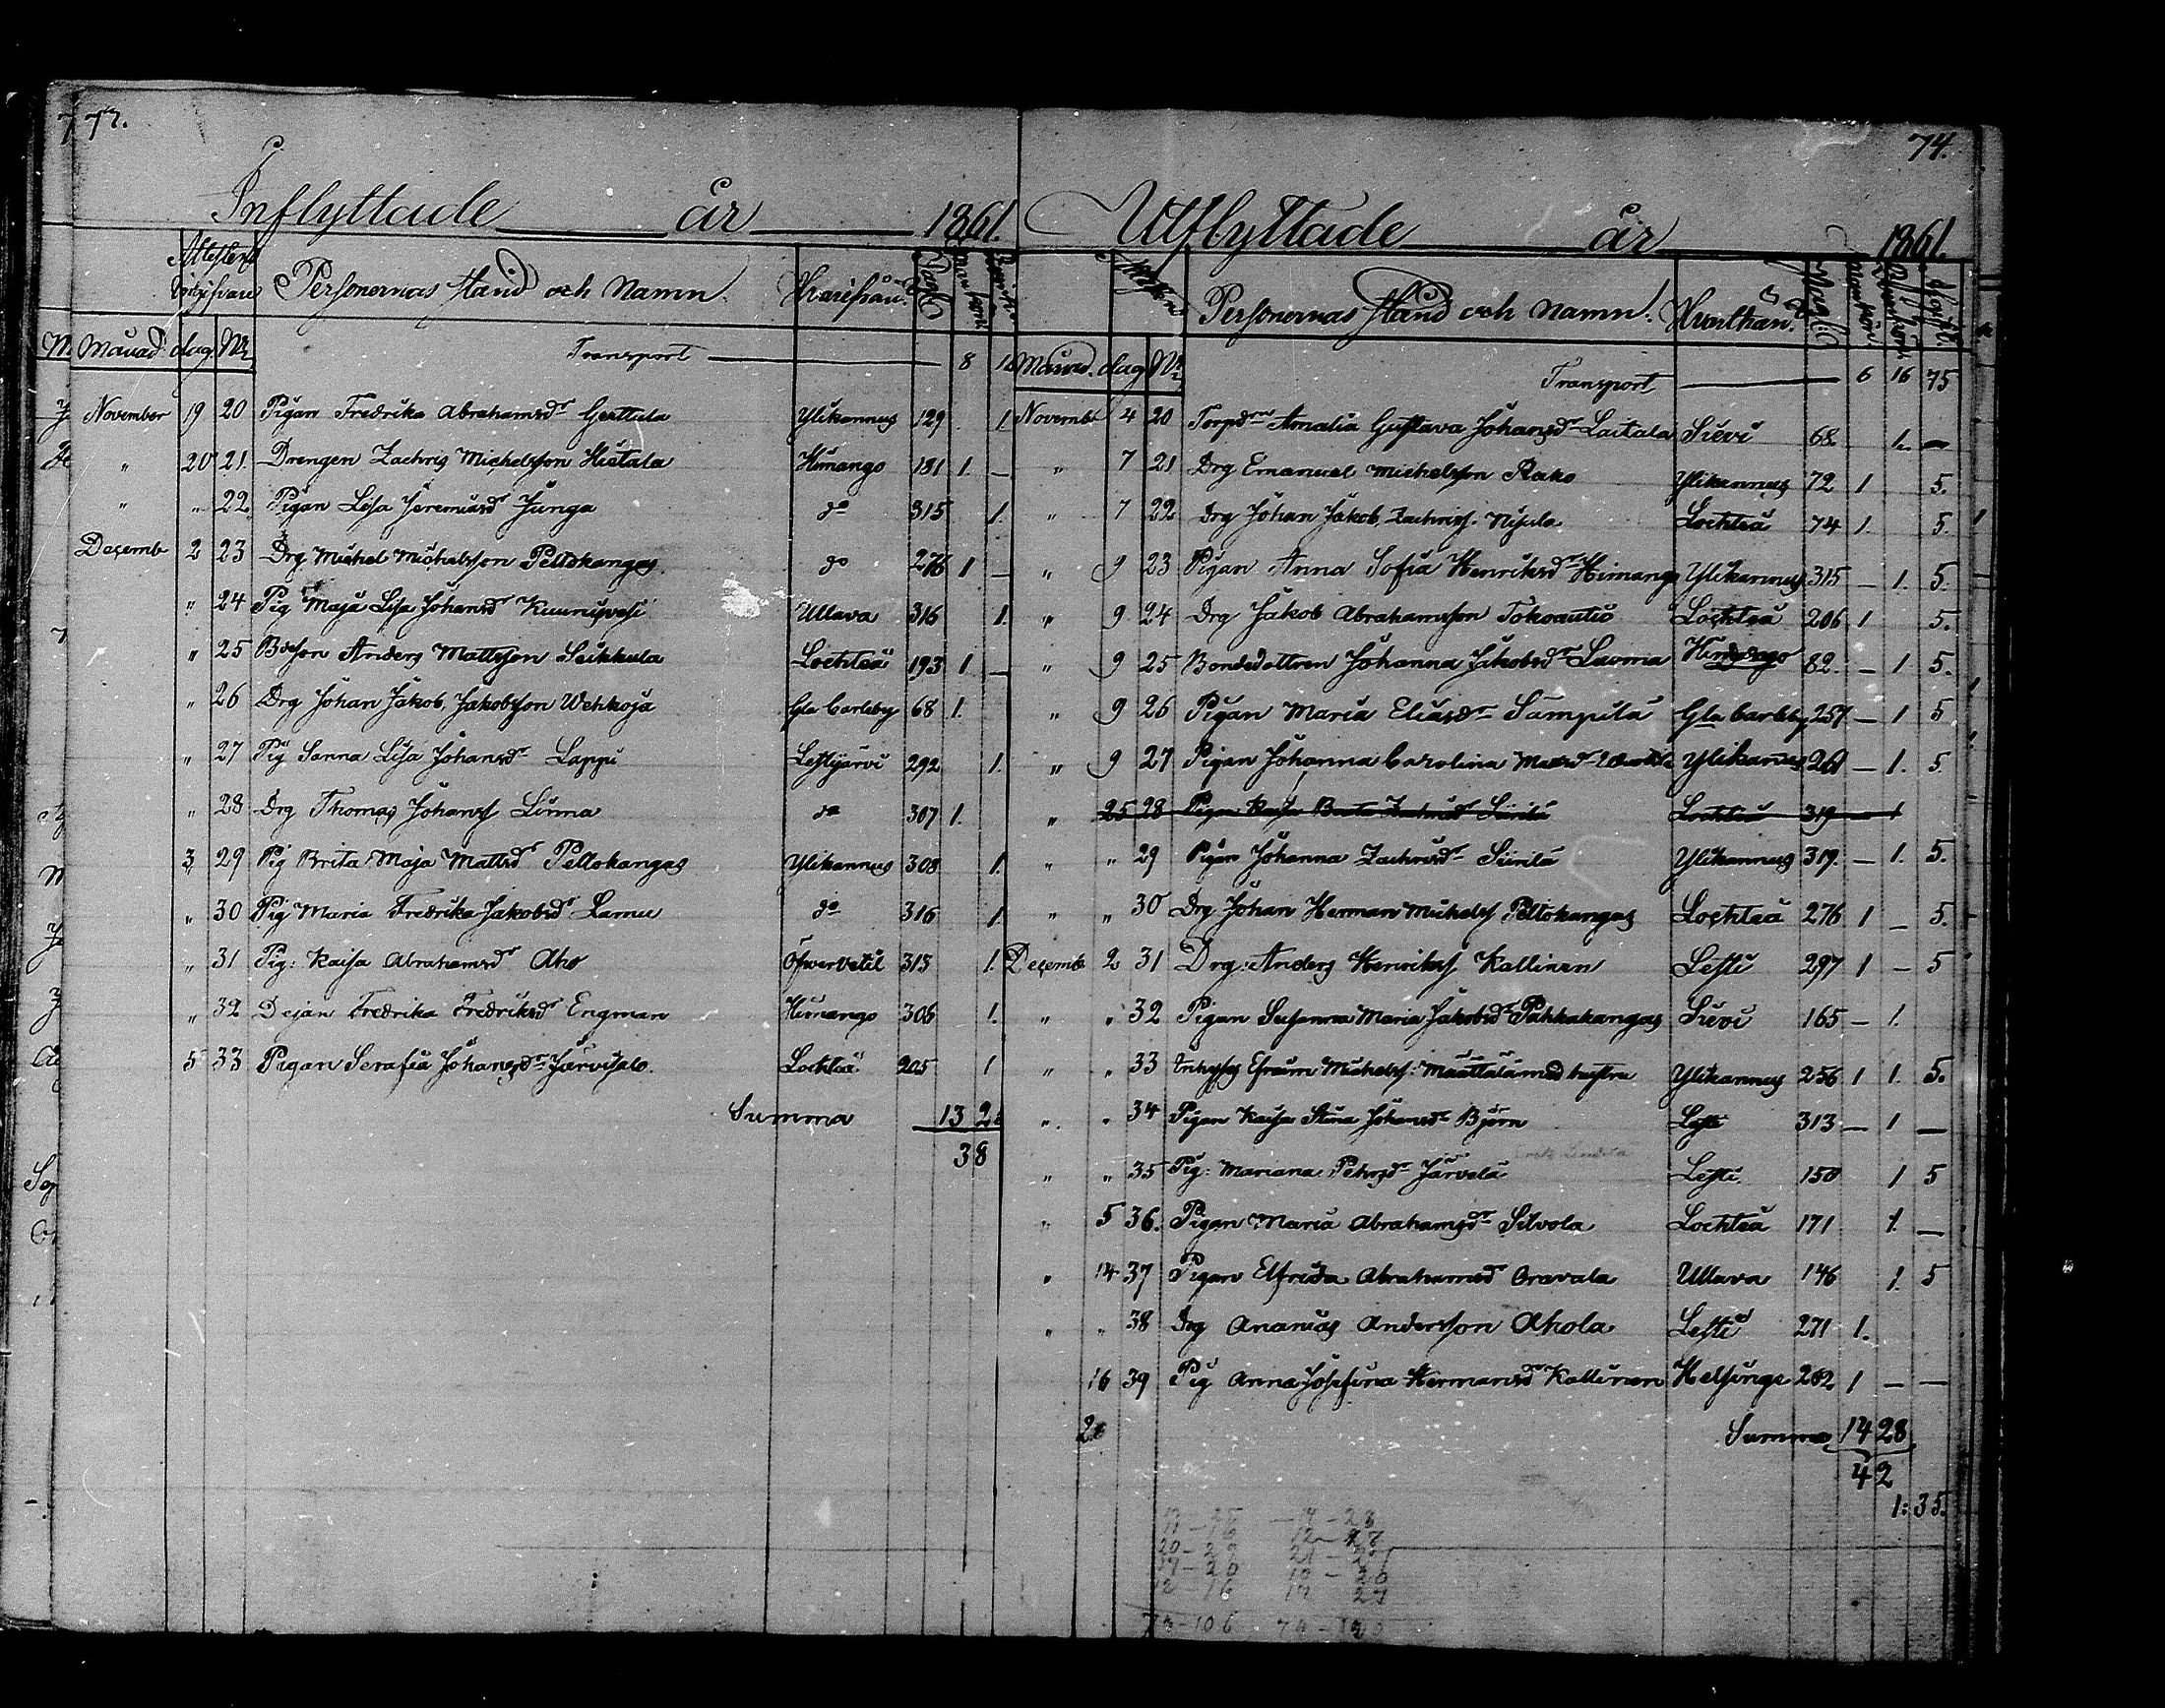 72.
Inflyttade år 1861.
Personernas stånd och namn. Hvarifrån.
Månad. dag. No
Transport 8
November 19 20 Pigan Fredrika Abrahamsdr Gerttula Ylikannus 129 1.
" 20 21. Drengen Zachris Michelsson Hietala Himango 181 1. —
" " 22. Pigan Lisa Jeremiasdr Junga do 315 1.
Decemb 2 23 Drg Michel Michelsson Peltokangas do 276 1 —
" 24 Pig Maja Lisa Johansdr Kuurusvesi Ullava 316 1.
" 25 Bdeson Anders Mattsson Seikkula Lochteå 193 1 —
" 26 Drg Johan Jakob Jakobsson Wehkoja Gla Carleby 68 1.
" 27 Pig Sanna Lisa Johansdr Lappi Lestijärvi 292 1.
" 28 Drg Thomas Johanss Linna do 307 1.
3 29 Pig Brita Maja Mattsdr Peltokangas Ylikannus 308 1.
" 30 Pig Maria Fredrika Jakobsdr Lamu do 316 1
" 31 Pig: Kaisa Abrahamsdr Aho Öfvervetil 313 1.
" 32 Dejan Fredrika Fredriksdr Engman Himango 306 1.
5 33 Pigan Serafia Johansdr Järvisalo Lochteå 205 1
Summa 13 25
38
74.
Utflyttade år 1861.
Personernas stånd och namn. Hvarthän.
Månad. dag No
Transport 6 16 75
Novemb 4 20 Amalia Gustava Johansdr Laitala Sievi 68 1. —
" 7 21 Drg Emanuel Michelsson Rako Ylikannus 72 1 5.
" 7 22 Drg Johan Jakob Zachriss. Nisula Lochteå 74 1. 5.
" 9 23 Pigan Anna Sofia Henriksdr Himango Ylikannus 315 — 1. 5.
" 9 24 Drg Jakob Abrahamsson Tokoautio Lochteå 206 1 5.
" 9 25 Bondedottren Johanna Jakobsdr Himango 82. — 1 5.
" 9 26 Pigan Maria Eliasdr Sämpilä Gla Carleby 257 — 1 5
" 9 27 Pigan Johanna Carolina Ylikannus 261 — 1. 5.
" 25 28 Pigan Kaisa Brita Zachrisdr Siirilä Lochteå 319 — 1
" " 29 Pigan Johanna Zachrisdr Siirilä Ylikannus 319. — 1. 5.
" " 30 Drg Johan Herman Michelss Peltokangas Lochteå 276 1 — 5.
Decemb 2 31 Drg: Anders Henrikss Kallinen Lesti 297 1 — 5
" " 32 Pigan Susanna Maria Jakobsdr Pahkakangas Sievi 165 — 1.
" " 33 Inhyses Efraim Michelss: Määttälä med hustru Ylikannus 256 1 1. 5.
" " 34 Pigan Kaisa Stina Johansdr Björn Lesti 313 — 1 —
" " 35 Pig: Mariana Petersdr Järvelä Lesti 150 1 5
" 5 36. Pigan Maria Abrahamsdr Silvola Lochteå 171 1. —
" 14 37 Pigan Elfrida Abrahamsdr Oravala Ullava 146 1. 5
" " 38 Drg Ananias Andersson Ahola Lesti 271 1.
16 39 Pig Anna Josefina Hermansdr Kallinen Helsinge 282 1 — —
Summa 14 28
42
1:35.